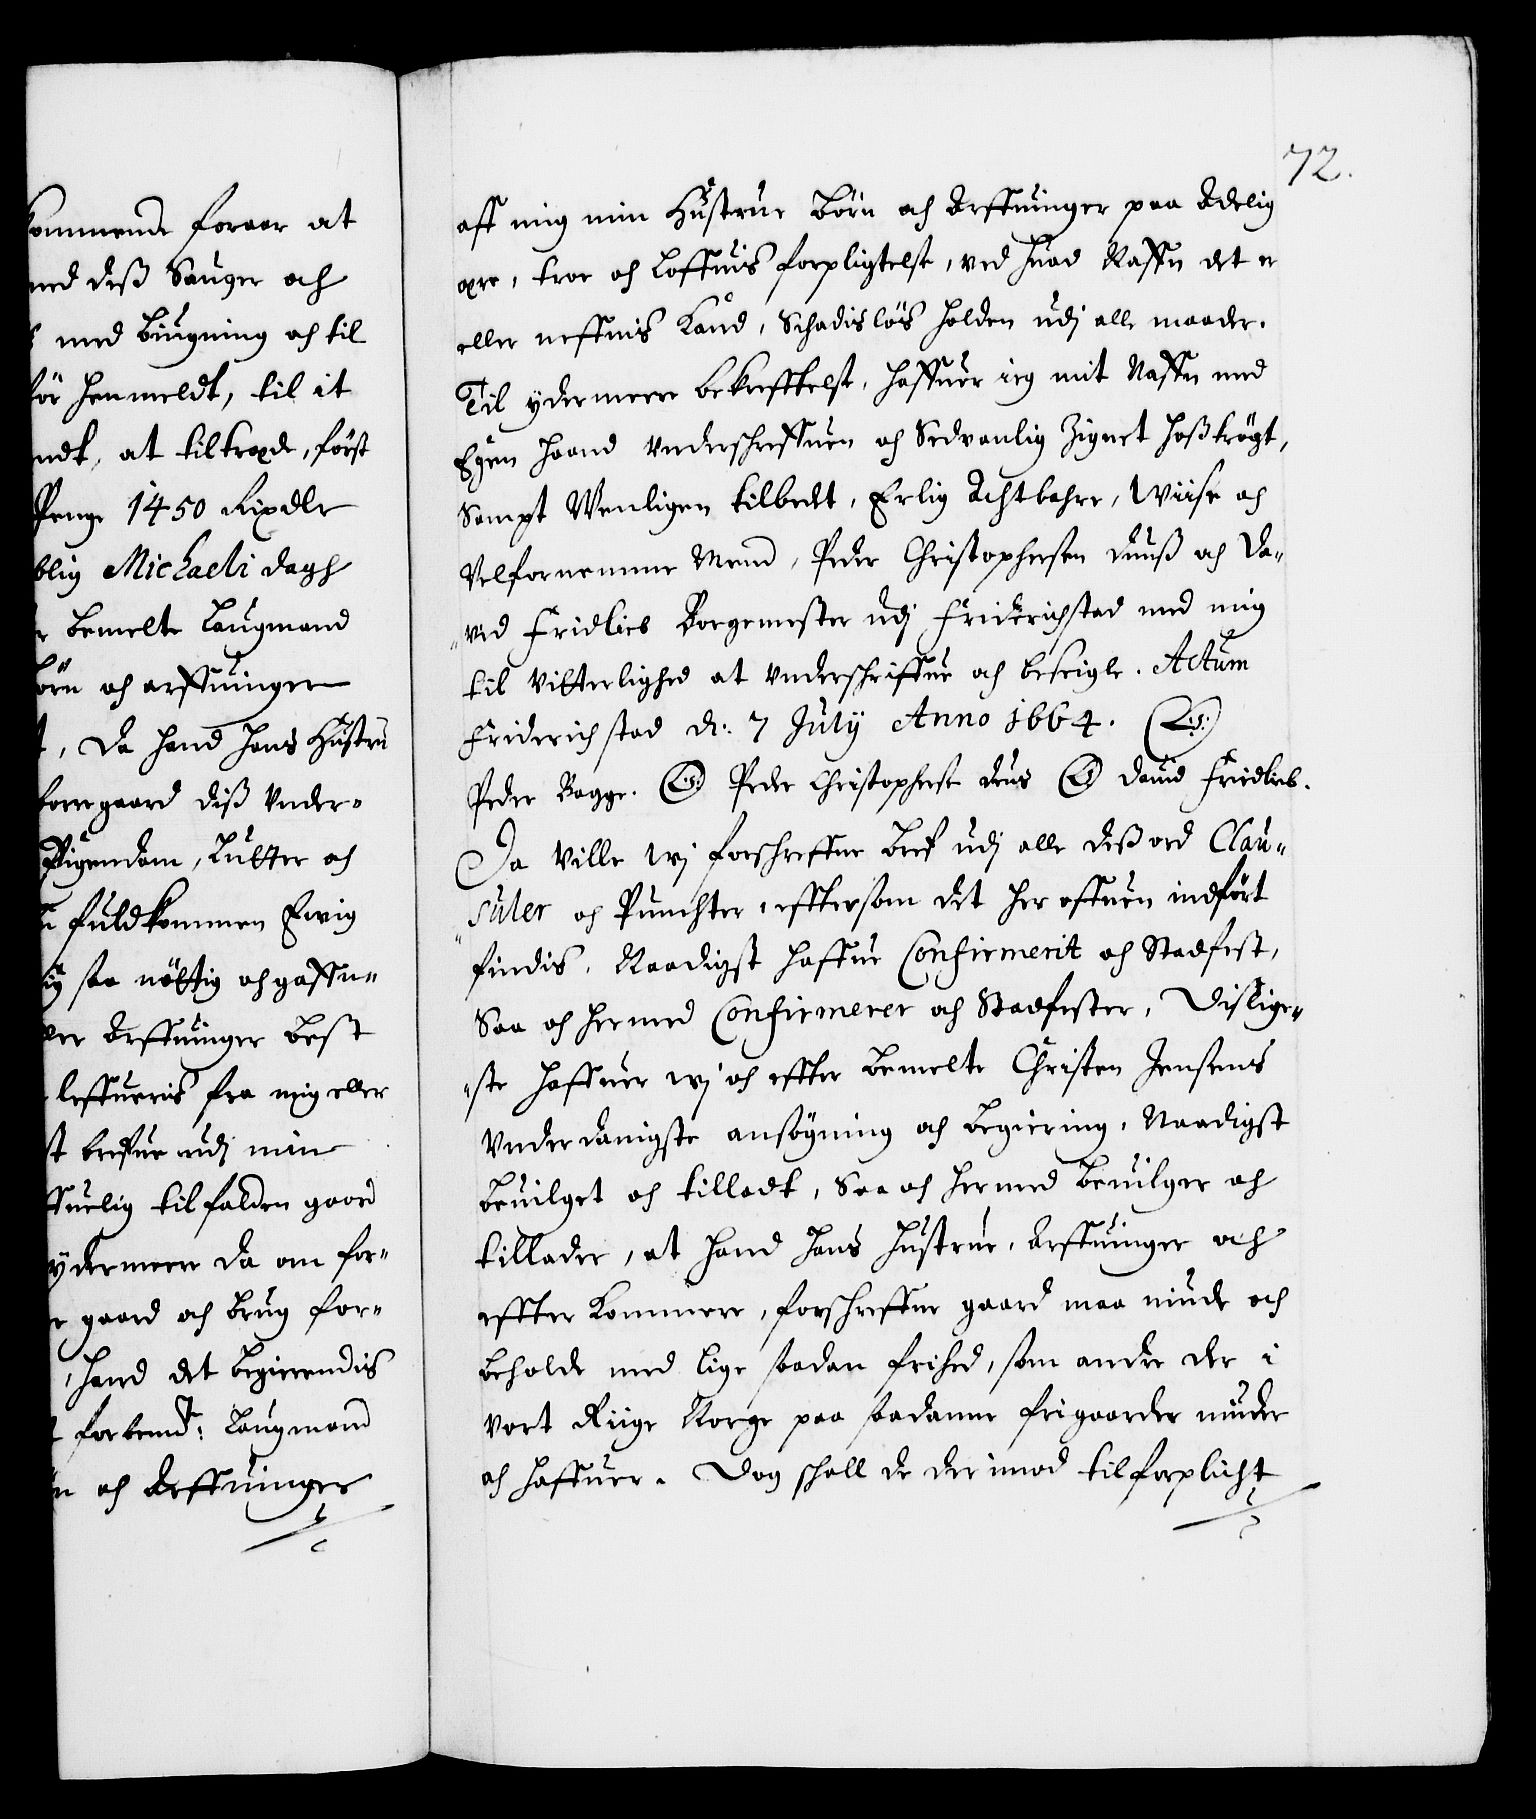 kommende foraar at
med diß Sauger och
med biugning och til
för henmeldt, til it
ndt, at tiltræde, först
Penge 1450 Rixdlr
blig Michaeli dagh
bemelte Laugmand
börn och arffuinger
, da hand hans Hustru
forregaard diß vnder-
Eigendom, Lutter och
fuldkommen Ewig
saa nöttig och gaffn-
ller Arffuinger best
leffueris fra mig eller
t breffue udj min
ffuelig tilfalden gaard
ydermeere da om for-
gaard och brug for-
, hand det begierendis
forbemt: Laugmand
n och Arffuinger
72.
aff mig min Hustrue Börn och Arffuinger paa Adelig
ære, troe och Loffuis forpligtelse, ved huad Naffn det er
eller neffnis Kand, Schadislöis holden udj alle maader.
Til ydermeere bekrefftelse, haffuer ieg mit Naffn med
Egen haand vnderschreffuen och Sedvanlig Zignet hoßtrögt,
Sampt Wenligen tilbedt, Erlig Achtbahre, Wiise och
Velfornemme Mend, Peder Christophersen Duuß och Da-
"vid Fridlieb Borgemester udj Friderichstad med mig
til vitterlighed at vnderschriffue och beseigle. Actum
Friderichstad d: 7 July Anno 1664. (L:S:)
Peder Bagge. (L:S:) Peder Christopherse Duus (LS) Dauid Friedlieb.
Da ville wj forschreffne bref udj alle diß ord Clau-
"suler och Puncter, efftersom det her offuen indfört
findis, Naadigst haffue Confirmerit och Stadfest,
Saa och hermed Confirmerer och Stadfester, Dislige-
"ste haffuer wj och effter bemelte Christen Jensens
vnderdanigste ansögning och begiering, Naadigst
beuilget och tilladt, Saa och hermed beuilger och
tillader, at hand hans hustrue, Arffuinger och
effter Kommere, forschreffne gaard maa niude och
beholde med lige saadan frihed, som andre der i
vort Riige Norge paa saadanne frigaarder niuder
och haffuer. Dog schall de derimod tilforplicht